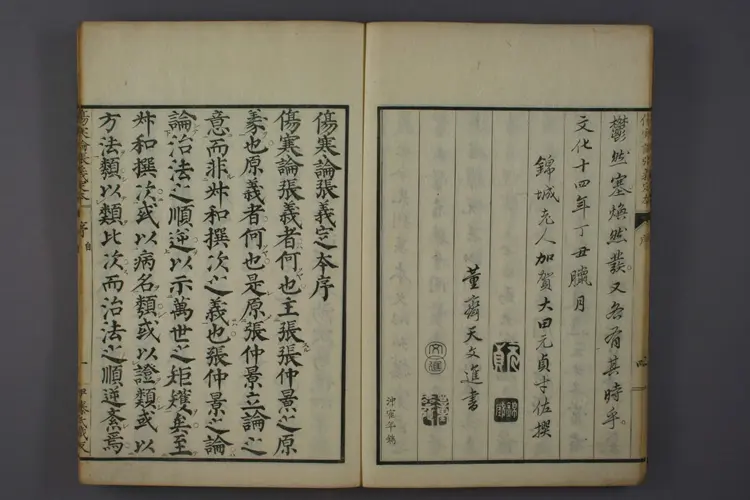 鬱然塞煥然發又各有其時乎
文化十四年丁丑臘月
錦城老人加賀大田元貞才佐撰
董齋天文進書
傷寒論張義定本序
傷寒論張義者何也主張張仲景之原
義也原義者何也是原張仲景立論之
意而非叔和撰次之義也張仲景之論
論治法之順逆以示萬世之矩矱矣至
叔和撰次或以病名類或以證類或以
方法類以類比次而治法之順逆紊焉
傷寒論張義定本
序